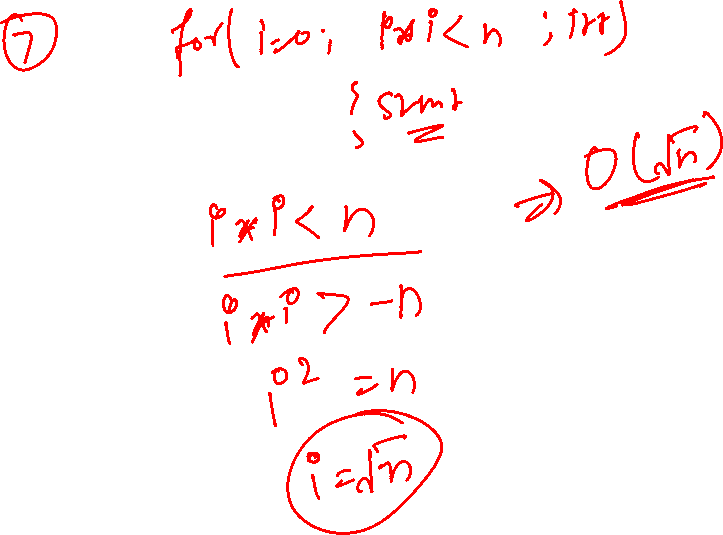 ⑦ for( i=0; i*i<n ; i++)
{ stmt
}
⇒ O(√n)
i*i < n
i*i > =n
i² = n
i = √n